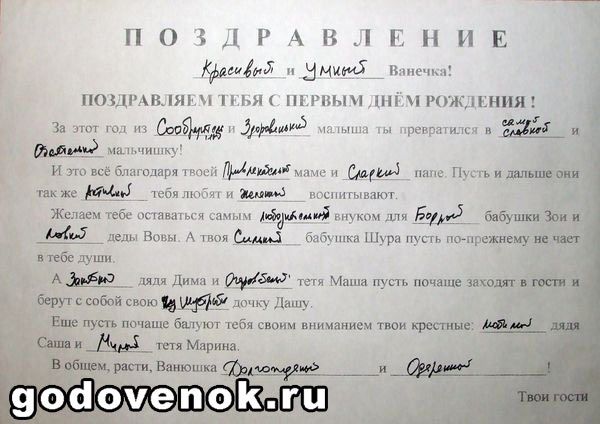 ПОЗДРАВЛЕНИЕ
Красивый и умный Ванечка!
ПОЗДРАВЛЯЕМ ТЕБЯ С ПЕРВЫМ ДНЁМ РОЖДЕНИЯ !
За этот год из и Здоровенький малыша ты превратился в самой славной и
мальчишку!
И это всё благодаря твоей маме и Сладкий папе. Пусть и дальше они
так же Активный тебя любят и желанный воспитывают.
Желаем тебе оставаться самым любознательной внуком для Бодрый бабушки Зои и
ловкий деды Вовы. А твоя Сильный бабушка Шура пусть по-прежнему не чает
в тебе души.
А дядя Дима и тетя Маша пусть почаще заходят в гости и
берут с собой свою шустрый дочку Дашу.
Еще пусть почаще балуют тебя своим вниманием твои крестные: любимой дядя
Саша и Милой тетя Марина.
В общем, расти, Ванюшка и Одаренной !
Твои гости
godovenok.ru